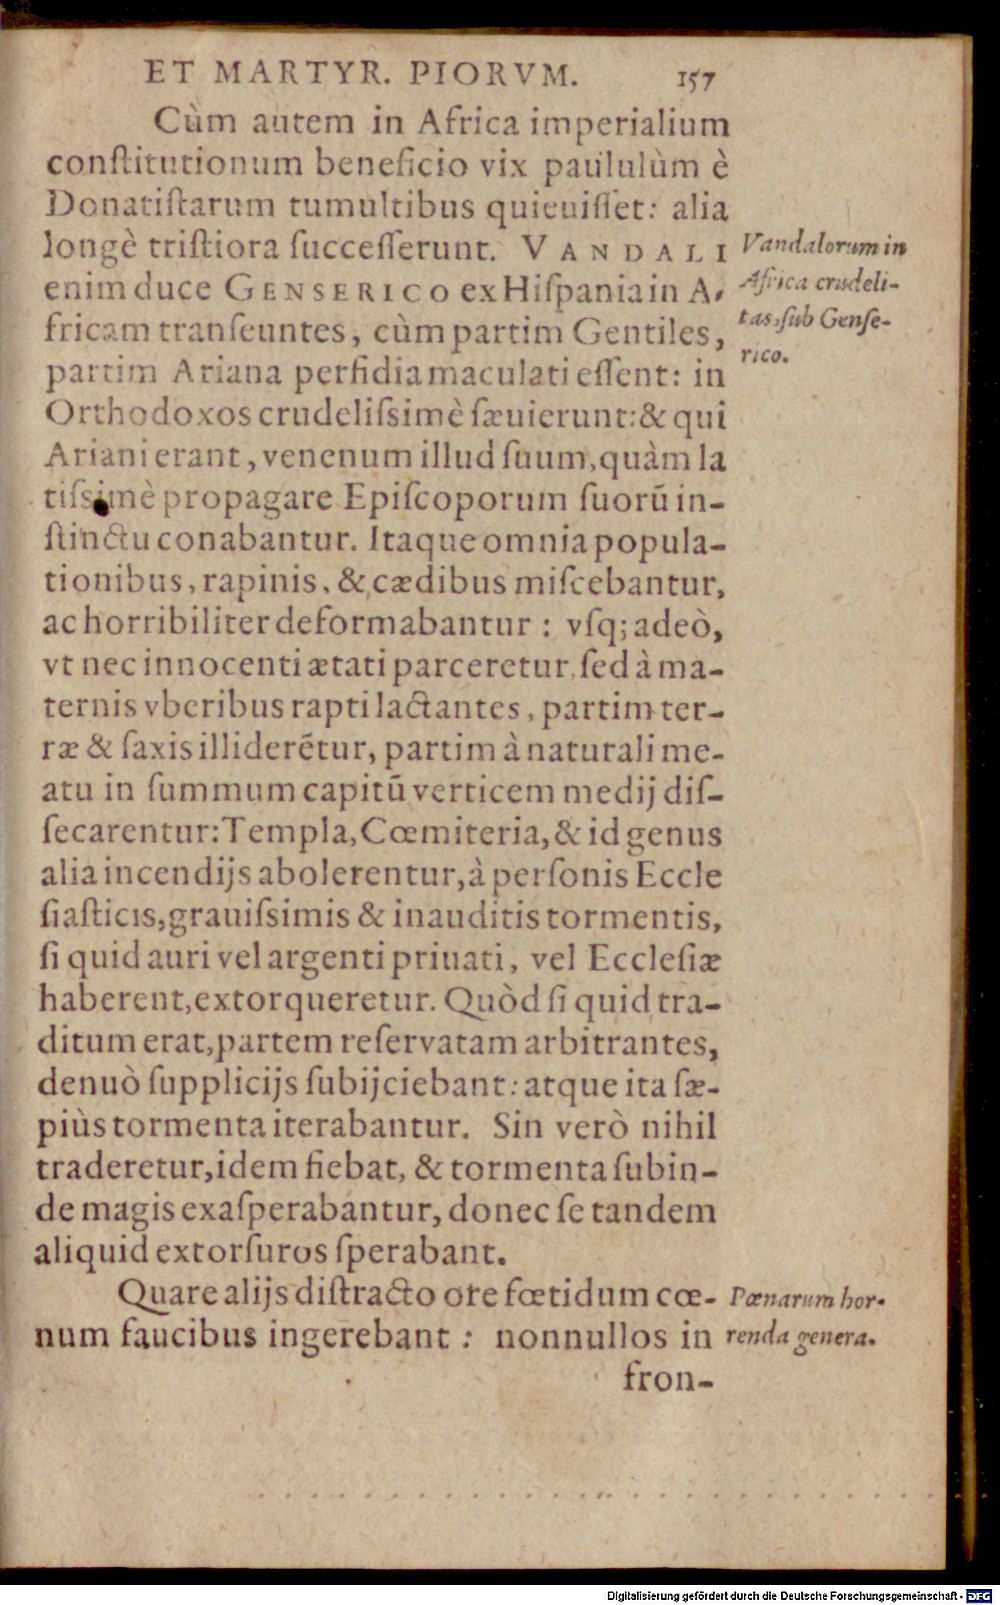 ET MARTYR. PIORVM. 157
Cùm autem in Africa imperialium
conſtitutionum beneficio vix paululùm è
Donatiſtarum tumultibus quieuiſſet: alia
longè triſtiora ſucceſſerunt. VANDALI
enim duce GENSERICO ex Hiſpania in A-
fricam tranſeuntes, cùm partim Gentiles,
partim Ariana perfidia maculati eſſent: in
Orthodoxos crudeliſsimè ſæuierunt: & qui
Ariani erant, venenum illud ſuum, quàm la
tiſsimè propagare Epiſcoporum ſuorū in-
ſtinctu conabantur. Itaque omnia popula-
tionibus, rapinis, & cædibus miſcebantur,
ac horribiliter deformabantur: vſq; adeò,
vt nec innocenti ætati parceretur, ſed à ma-
ternis vberibus rapti lactantes, partim ter-
ræ & ſaxis illiderētur, partim à naturali me-
atu in ſummum capitū verticem medij diſ-
ſecarentur: Templa, Cœmiteria, & id genus
alia incendijs abolerentur, à perſonis Eccle
ſiaſticis, grauiſsimis & inauditis tormentis,
ſi quid auri vel argenti priuati, vel Eccleſiæ
haberent, extorqueretur. Quòd ſi quid tra-
ditum erat, partem reſervatam arbitrantes,
denuò ſupplicijs ſubijciebant: atque ita ſæ-
piùs tormenta iterabantur. Sin verò nihil
traderetur, idem fiebat, & tormenta ſubin-
de magis exaſperabantur, donec ſe tandem
aliquid extorſuros ſperabant.
Quare alijs diſtracto ore fœtidum cœ-
num faucibus ingerebant: nonnullos in
fron-
Vandalorum in
Africa crudeli-
tas, ſub Genſe-
rico.
Pœnarum hor-
renda genera.
Digitalisierung gefördert durch die Deutsche Forschungsgemeinschaft - DFG